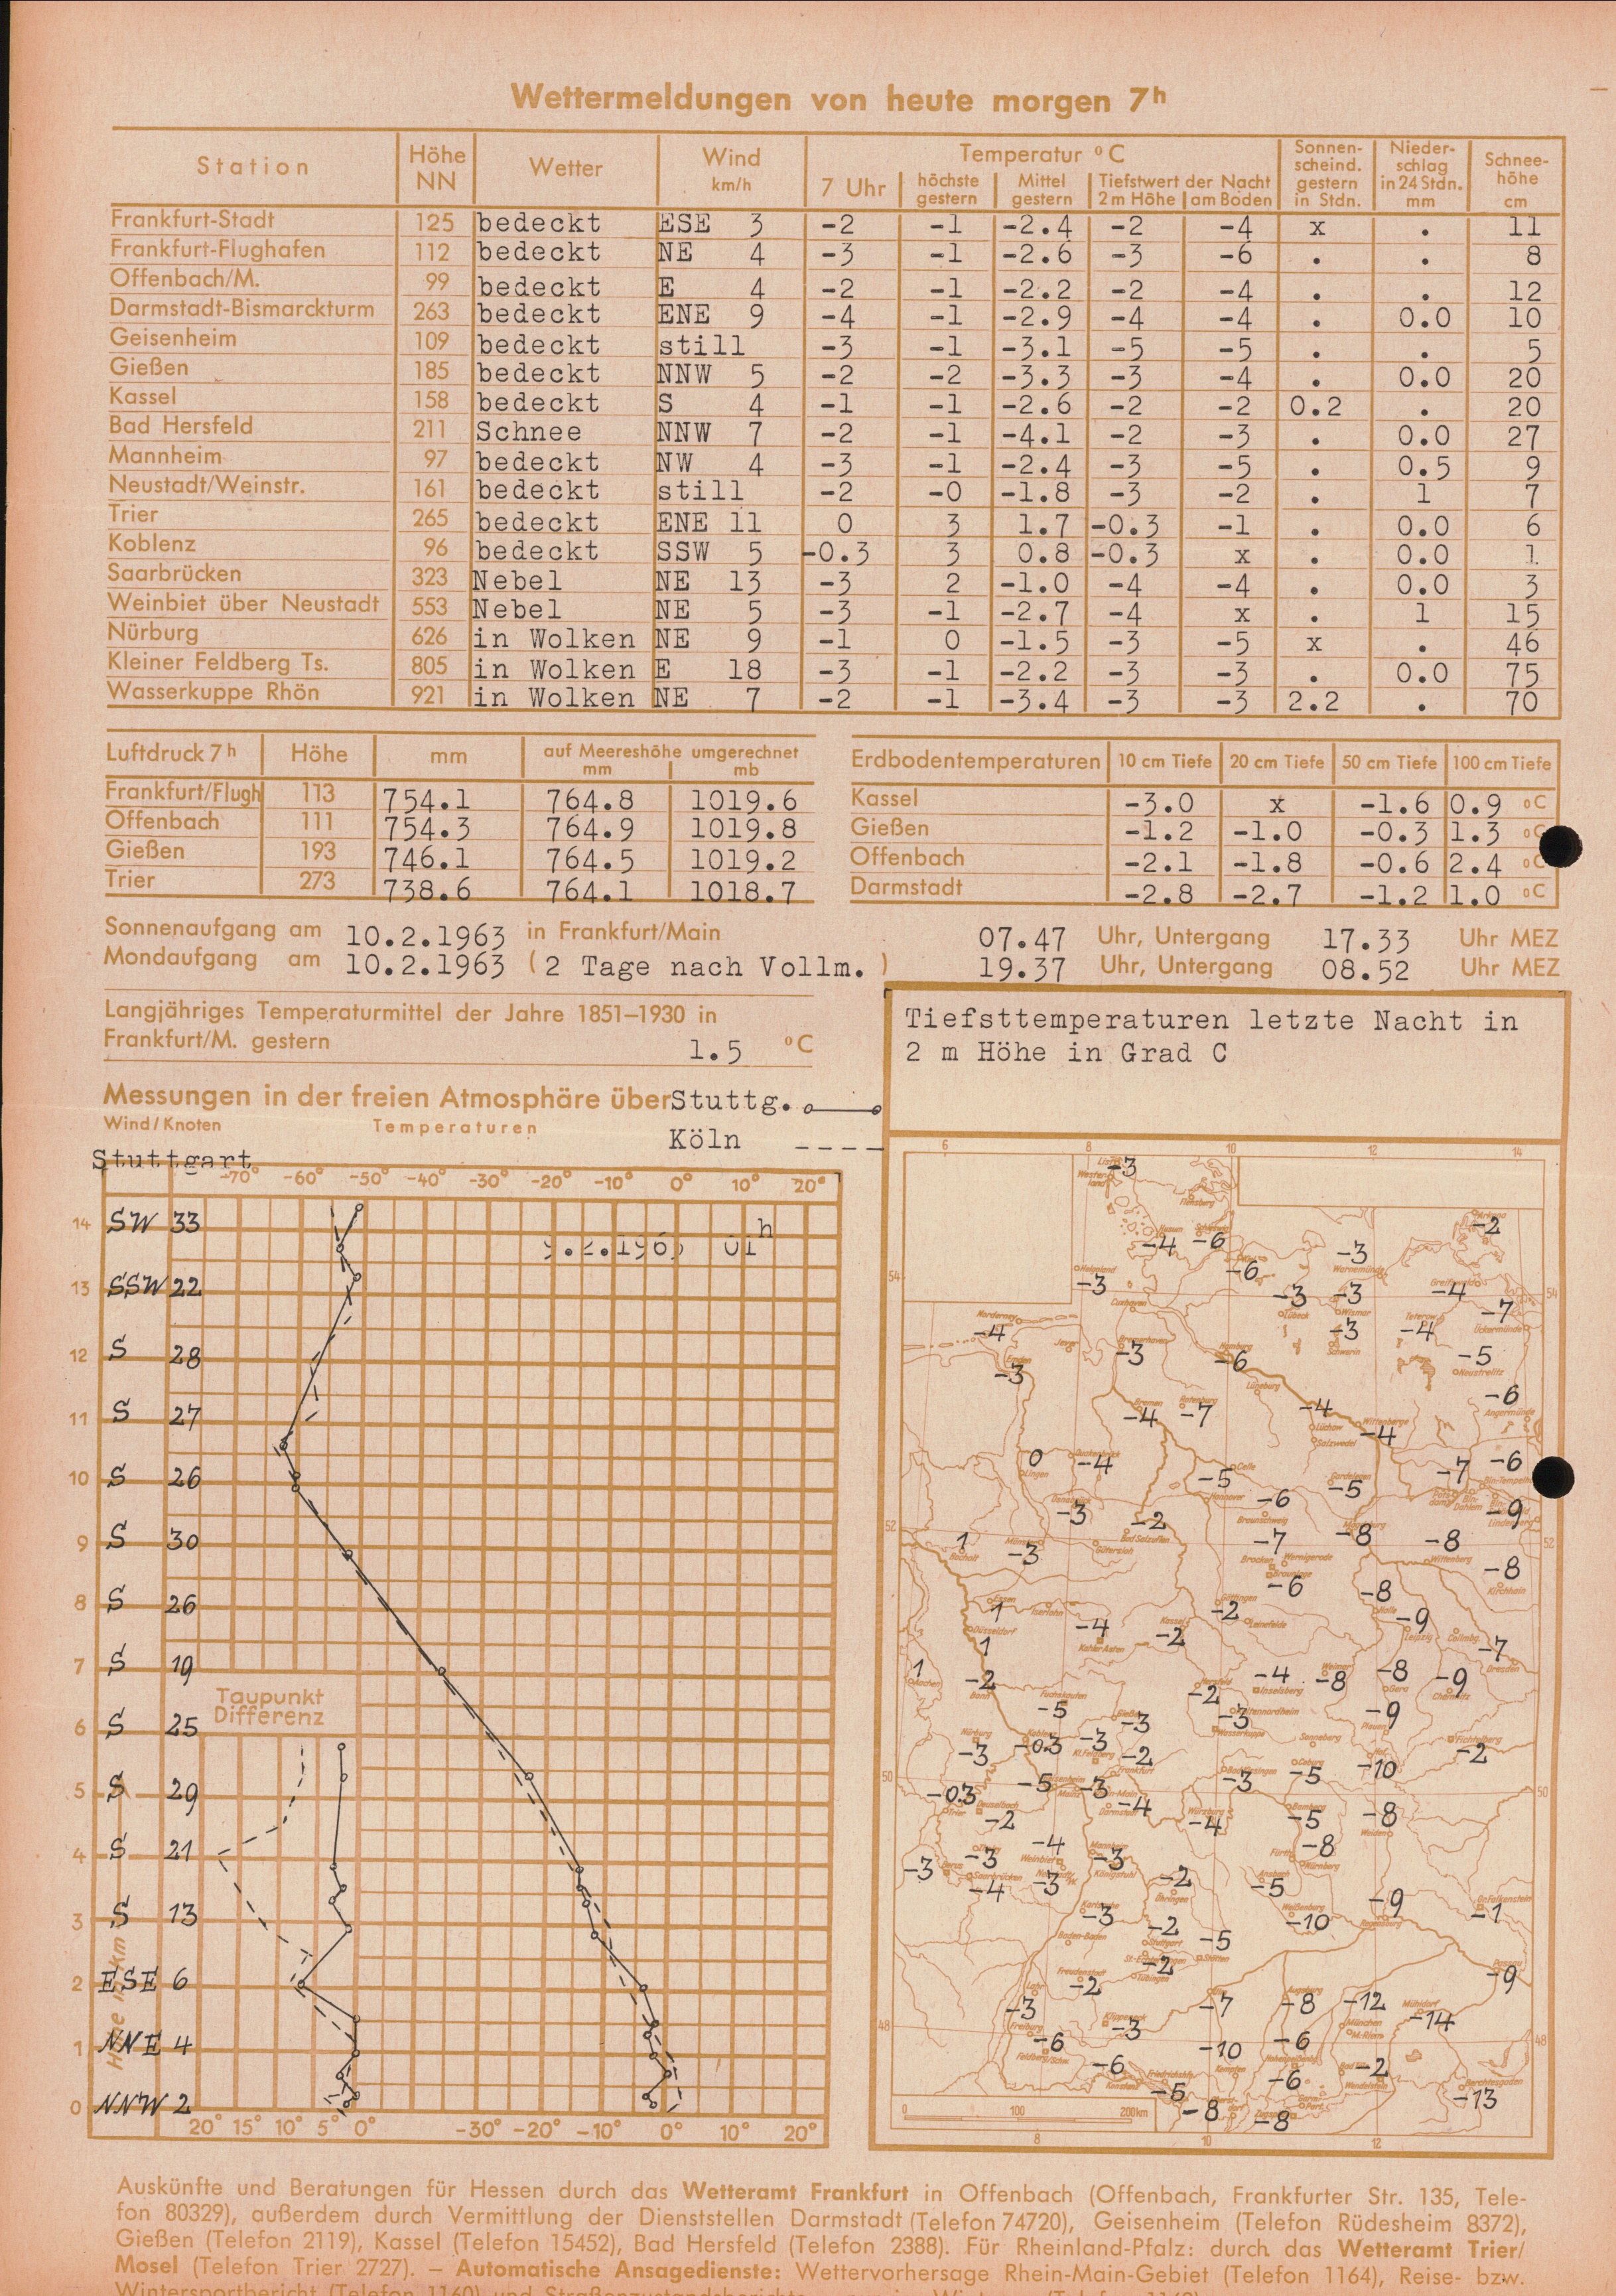 Wettermeldungen von heute morgen 7h
Station Höhe NN Wetter Wind km/h Temperatur °C Sonnenscheind. gestern in Stdn. Niederschlag in 24 Stdn. mm Schneehöhe cm
7 Uhr höchste gestern Mittel gestern Tiefstwert der Nacht 2 m Höhe am Boden
Frankfurt-Stadt 125 bedeckt ESE 3 -2 -1 -2.4 -2 -4 x . 11
Frankfurt-Flughafen 112 bedeckt NE 4 -3 -1 -2.6 -3 -6 . . 8
Offenbach/M. 99 bedeckt E 4 -2 -1 -2.2 -2 -4 . . 12
Darmstadt-Bismarckturm 263 bedeckt ENE 9 -4 -1 -2.9 -4 -4 . 0.0 10
Geisenheim 109 bedeckt still -3 -1 -3.1 -5 -5 . . 5
Gießen 185 bedeckt NNW 5 -2 -2 -3.3 -3 -4 . 0.0 20
Kassel 158 bedeckt S 4 -1 -1 -2.6 -2 -2 0.2 . 20
Bad Hersfeld 211 Schnee NNW 7 -2 -1 -4.1 -2 -3 . 0.0 27
Mannheim 97 bedeckt NW 4 -3 -1 -2.4 -3 -5 . 0.5 9
Neustadt/Weinstr. 161 bedeckt still -2 -0 -1.8 -3 -2 . 1 7
Trier 265 bedeckt ENE 11 0 3 1.7 -0.3 -1 . 0.0 6
Koblenz 96 bedeckt SSW 5 -0.3 3 0.8 -0.3 x . 0.0 1
Saarbrücken 323 Nebel NE 13 -3 2 -1.0 -4 -4 . 0.0 3
Weinbiet über Neustadt 553 Nebel NE 5 -3 -1 -2.7 -4 x . 1 15
Nürburg 626 in Wolken NE 9 -1 0 -1.5 -3 -5 x . 46
Kleiner Feldberg Ts. 805 in Wolken E 18 -3 -1 -2.2 -3 -3 . 0.0 75
Wasserkuppe Rhön 921 in Wolken NE 7 -2 -1 -3.4 -3 -3 2.2 . 70
Luftdruck 7h Höhe mm auf Meereshöhe umgerechnet mm mb
Frankfurt/Flugh 113 754.1 764.8 1019.6
Offenbach 111 754.3 764.9 1019.8
Gießen 193 746.1 764.5 1019.2
Trier 273 738.6 764.1 1018.7
Erdbodentemperaturen 10 cm Tiefe 20 cm Tiefe 50 cm Tiefe 100 cm Tiefe
Kassel -3.0 x -1.6 0.9 °C
Gießen -1.2 -1.0 -0.3 1.3 °C
Offenbach -2.1 -1.8 -0.6 2.4 °C
Darmstadt -2.8 -2.7 -1.2 1.0 °C
Sonnenaufgang am 10.2.1963 in Frankfurt/Main 07.47 Uhr, Untergang 17.33 Uhr MEZ
Mondaufgang am 10.2.1963 (2 Tage nach Vollm. ) 19.37 Uhr, Untergang 08.52 Uhr MEZ
Langjähriges Temperaturmittel der Jahre 1851–1930 in
Frankfurt/M. gestern 1.5 °C
Messungen in der freien Atmosphäre über Stuttg.
Wind/Knoten Temperaturen Köln
Stuttgart
-70° -60° -50° -40° -30° -20° -10° 0° 10° 20°
9.2.1963 01h
14 SW 33
13 SSW 22
12 S 28
11 S 27
10 S 26
9 S 30
8 S 26
7 S 19
Taupunkt
Differenz
6 S 25
5 S 29
4 S 21
3 S 13
2 ESE 6
1 NNE 4
0 NNW 2
Höhe in km
20° 15° 10° 5° 0° -30° -20° -10° 0° 10° 20°
Tiefsttemperaturen letzte Nacht in
2 m Höhe in Grad C
6 8 10 12 14
-3
-2
-4 -6 -3
-3 -6
-3 -3 -4 -7
-4 -3 -4
-3 -6 -5
-3
-6
-4 -7 -4 -4
0 -4 -5 -5 -7 -6
-3 -2 -6 -9
1 -3 -7 -8 -8 -8
1 -4 -2 -2 -6 -8 -9
1 -7
1 -2 -2 -4 -8 -8 -9
-5 -3 -3 -9
-3 -0.3 -3 -2 -2
-0.3 -5 -3 -4 -3 -5 -10
-2 -4 -5 -8
-3 -3 -4 -3 -8
-4 -3 -2 -5
-3 -2 -5 -10 -9 -1
-2 -2 -9
-3 -3 -7 -8 -12 -14
-6 -10 -6
-6 -5 -6 -2 -13
-8 -8
0 100 200km
8 10 12
Auskünfte und Beratungen für Hessen durch das Wetteramt Frankfurt in Offenbach (Offenbach, Frankfurter Str. 135, Tele-
fon 80329), außerdem durch Vermittlung der Dienststellen Darmstadt (Telefon 74720), Geisenheim (Telefon Rüdesheim 8372),
Gießen (Telefon 2119), Kassel (Telefon 15452), Bad Hersfeld (Telefon 2388). Für Rheinland-Pfalz: durch das Wetteramt Trier/
Mosel (Telefon Trier 2727). – Automatische Ansagedienste: Wettervorhersage Rhein-Main-Gebiet (Telefon 1164), Reise- bzw.
Wintersportbericht (Telefon 1160) und Straßenzustandsberichte